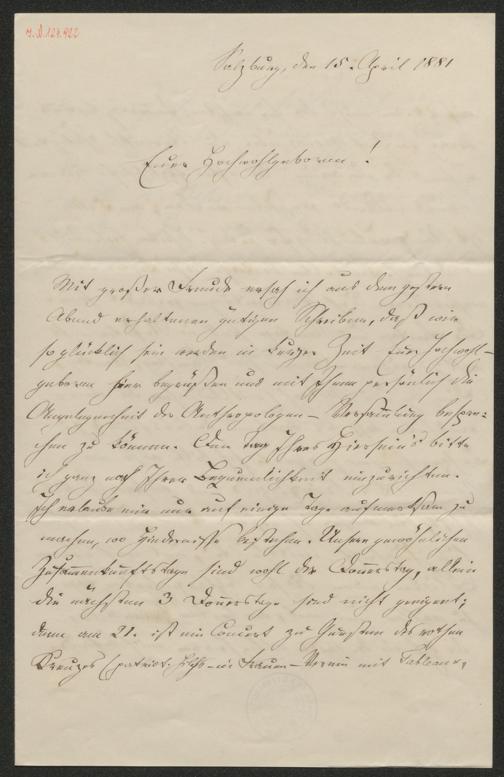 I.N. 127.422
Salzburg, den 15. April 1881
Euer Hochwohlgeboren!
Mit großer Freude ersah ich aus dem gestern
Abend erhaltenen gütigen Schreiben, daß wir
so glücklich sein werden in kurzer Zeit Euer Hochwohl-
geboren hier begrüßen und mit Ihnen persönlich die
Angelegenheit der Anthropologen-Versammlung bespre-
chen zu können. Den Tag Ihres Hierseins bitte
ich ganz nach Ihrer Bequemlichkeit einzurichten.
Ich erlaube mir nur auf einige Tage aufmerksam zu
machen, wo Hindernisse bestehen. Unsere gewöhnlichen
Zusammenkunftstage sind wohl die Donnerstag, allein
die nächsten 3 Donnerstage sind nicht geeignet;
denn am 21. ist ein Concert zu Gunsten des rothen
Kreuzes (patriot. Hilfs- u Frauen-Verein mit Tableaux,